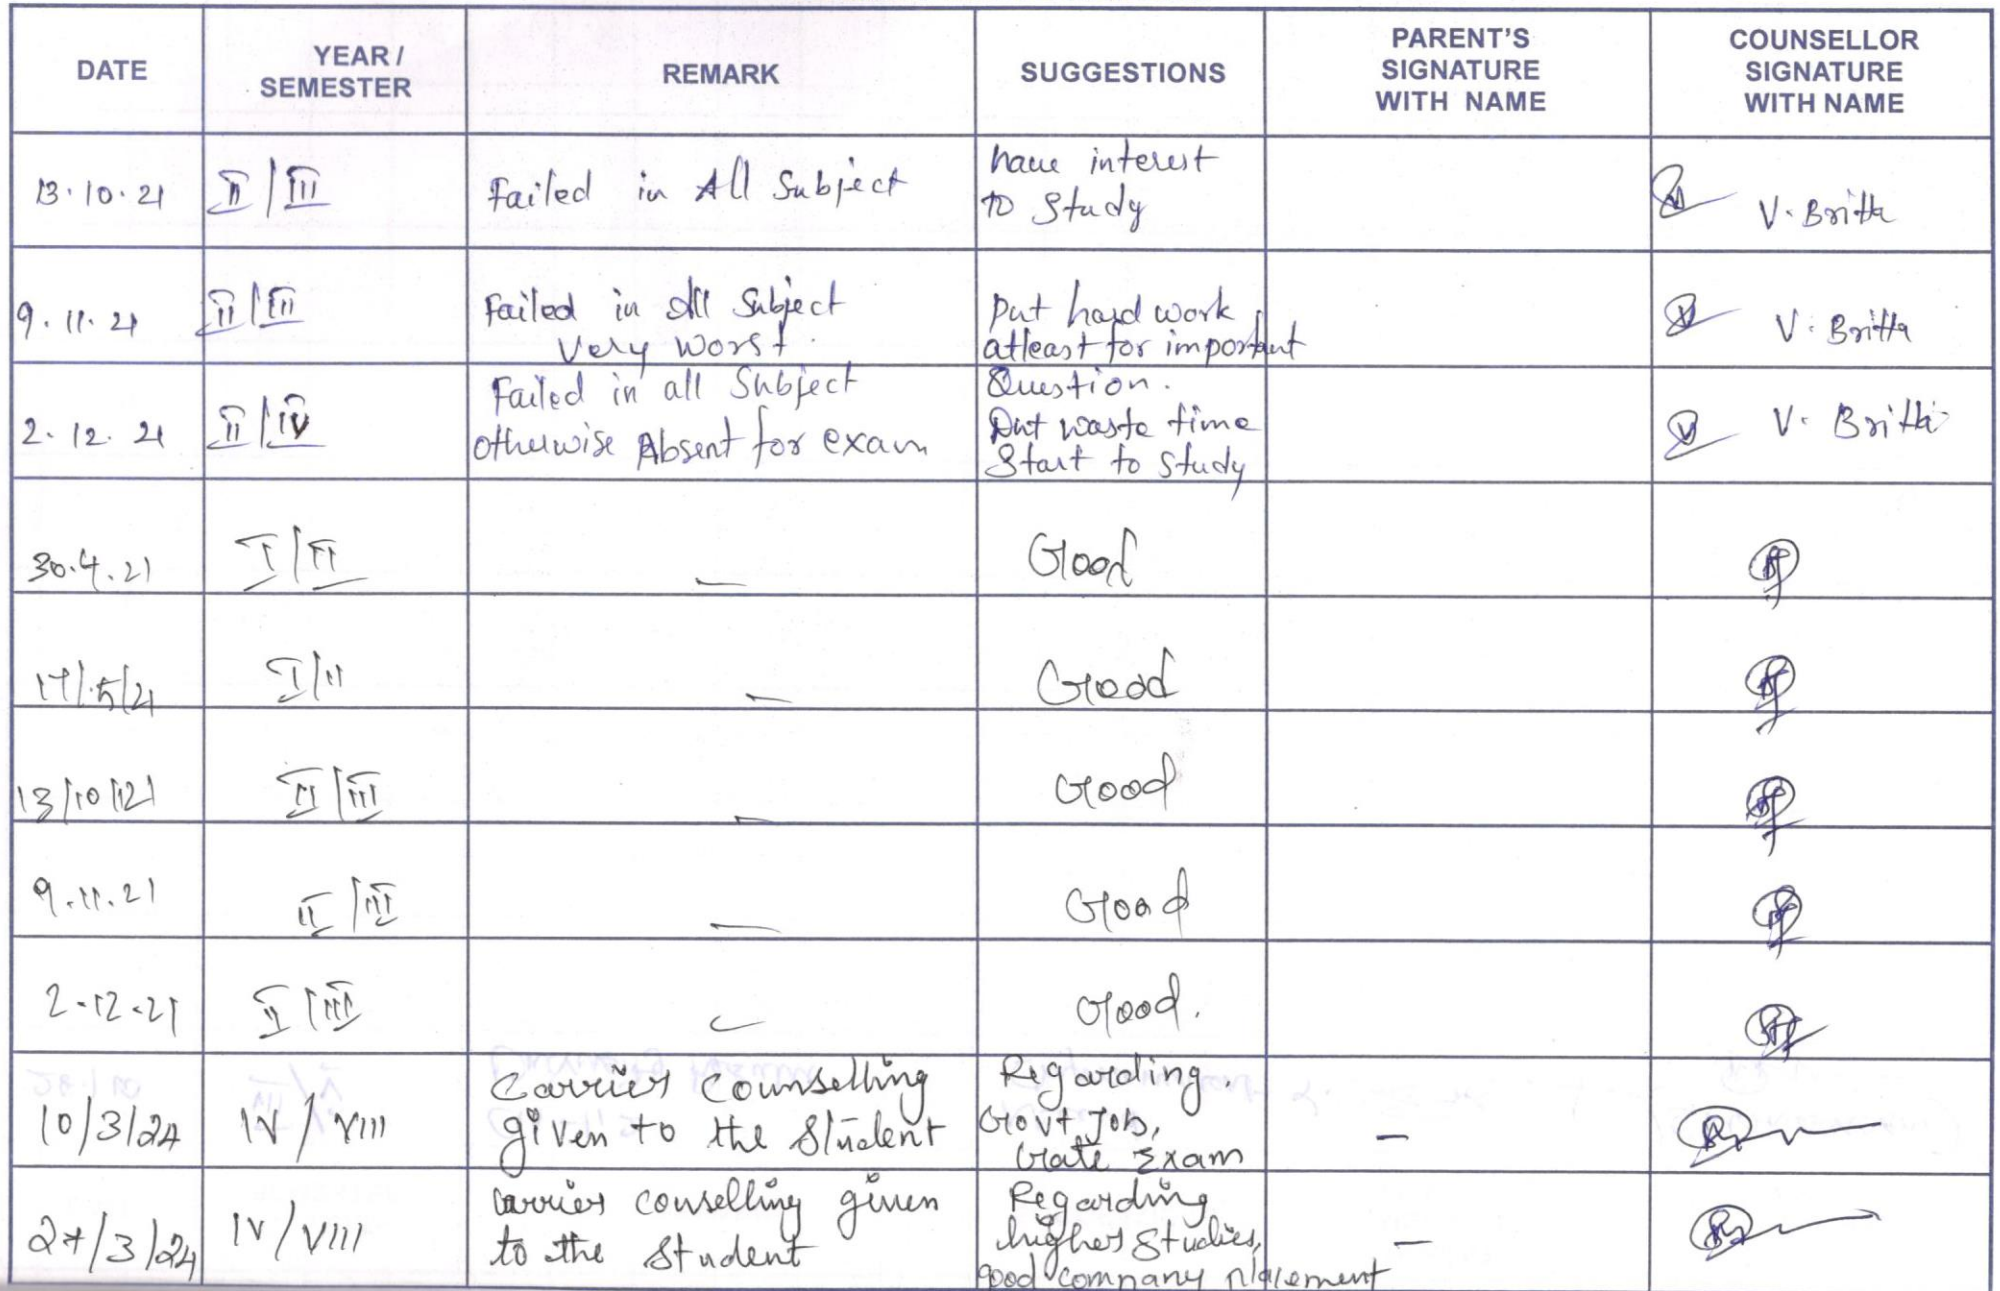 DATE YEAR / SEMESTER REMARK SUGGESTIONS PARENT'S SIGNATURE WITH NAME COUNSELLOR SIGNATURE WITH NAME
13.10.21 II/III Failed in All Subject have interest V. Britta
to Study
9.11.21 II/III Failed in All Subject Put hard work V. Britta
Very Worst. atleast for important
2.12.21 II/IV Failed in all Subject Question. V. Britta
otherwise Absent for exam Dnt waste time
Start to study
30.4.21 I/II — Good
17/5/21 I/II — Good
13/10/21 II/III — Good
9.11.21 II/III — Good
2.12.21 II/III — Good.
10/3/24 IV/VIII Carrier Counselling Regarding.
given to the Student Govt Job, —
Gate Exam
27/3/24 IV/VIII Carrier conselling given Regarding
to the Student higher Studies, —
good company placement